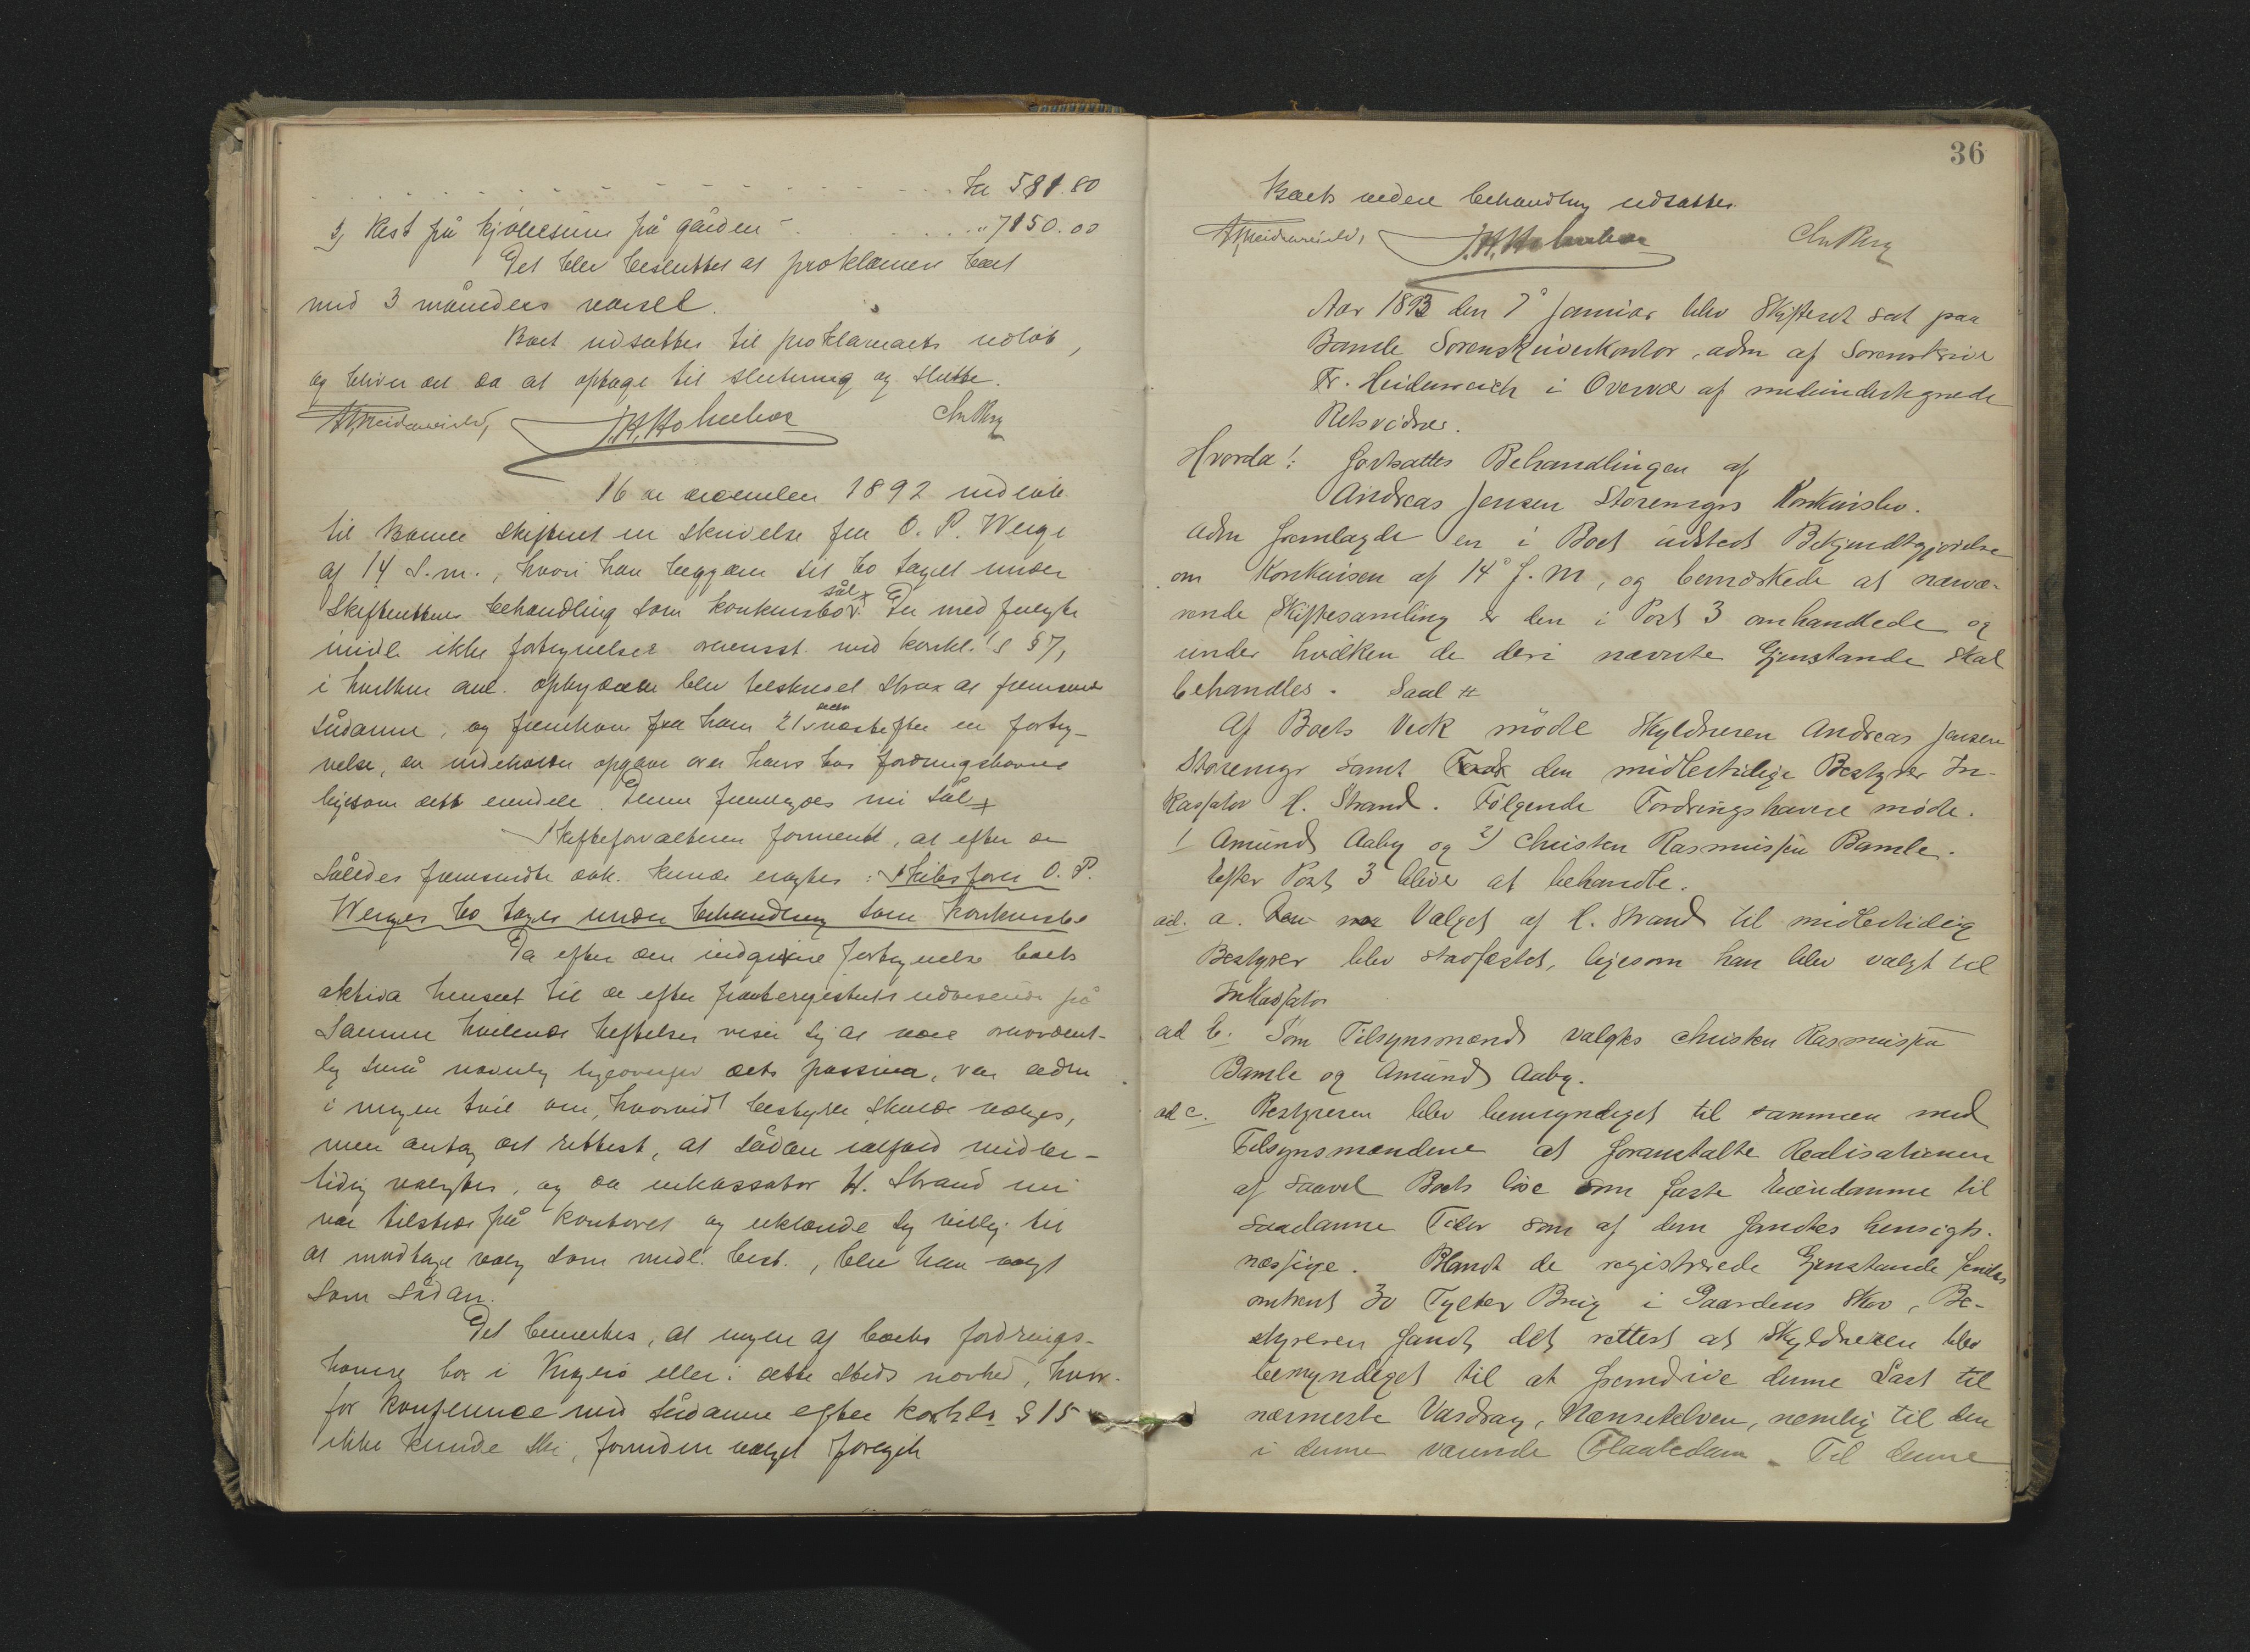 kr 581.80
3, Rest på kjøbesum på gården - " 7150.00
Det blev besluttet at proklamere boet
med 3 måneders varsel.
Boet udsættes til proklamaets udløb,
og bliver det da at optage til slutning og slutte.
J.H. Holmboe Chr Berg
16 de december 1892 indløb
til Bamle skifteret en skrivelse fra O. P. Werge
af 14 d.m., hvori han begjærer sit bo taget under
skifterettens behandling som konkursbo. sål. Da med fulgte
imidl. ikke fortegnelser overensst. med konkl.'s § 7,
i hvilken anl. ophyderen blev tilskrevet strax at fremsende
sådanne, og fremkom fra ham 21 næstefter en forteg-
nelse, der indeholder opgave over hans bos fordringshavere
ligesom dets eiendele. Denne fremlagdes nu sål.
Skifteforvalteren formente, at efter de
således fremsendte dok. kunde eragtes: Skibsfører O. P.
Werges bo tages under behandling som konkursbo
Da efter den indgivne fortegnelse boets
aktiva henseet til de efter panteregisterets udvisende på
samme hvilende heftelser viser sig at være overordent-
lig små navnlig ligeoverfor dets passiva, var adm
i megen tvil om, hvorvidt bestyrer skulde vælges,
men antog det rettest, at sådan ialfald midler-
tidig valgtes, og da inkassator H. Strand nu
var tilstede på kontoret og erklærede sig villig til
at modtage valg som midl. best., blev han valgt
som sådan.
Det bemerkes, at ingen af boets fordrings-
havere bor i Kragerø eller i dette steds nærhed, hvor-
for konference med sådanne efter konkl.s § 15
ikke kunde ske, forinden valget foregik
36
Boets videre behandling udsættes.
J.H. Holmboe Chr Berg
Aar 1893 den 7de Januar blev Skifteret sat paa
Bamle Sorenskriverkontor, adm af Sorenskriver
Fr. Heidenreich i Overvær af medundertegnede
Retsvidner.
Hvorda!: fortsattes Behandlingen af
Andreas Jensen Storemyrs Konkursbo.
Adm fremlagde en i Boet udstedt Bekjendtgjørelse
om Konkursen af 14de f.M, og bemærkede at nærvæ-
rende Skiftesamling er den i Post 3 omhandlede og
under hvilken de deri nævnte Gjenstande skal
behandles. Saal
Af Boets Vedk møde Skyldneren Andreas Jensen
Storemyr samt den midlertidige Bestyrer In-
kassator H. Strand. Følgende Fordringshavere møde.
1 Amund Aaby og 2) Christen Rasmussen Bamle.
Efter Post 3 bliver at behandle.
ad. a. Valget af H. Strand til midlertidig
Bestyrer blev stadfæstet, ligesom han blev valgt til
Inkassator
ad b. Som Tilsynsmænd valgtes Christen Rasmussen
Bamle og Amund Aaby.
ad c. Bestyreren blev bemyndiget til sammen med
Tilsynsmændene at foranstalte Realisationen
af saavel Boets løse som faste Eiendomme til
saadanne Tider som af dem fandtes hensigts-
mæssige. Blandt de registrerede Gjenstande findes
omtrent 30 Tylter Brig i Gaardens Skov, Be-
styreren fandt det rettest at Skyldneren blev
bemyndiget til at fremdrive denne Last til
nærmeste Vasdrag, Nænsetelven, nemlig til den
i denne værende Flaatedam. Til denne